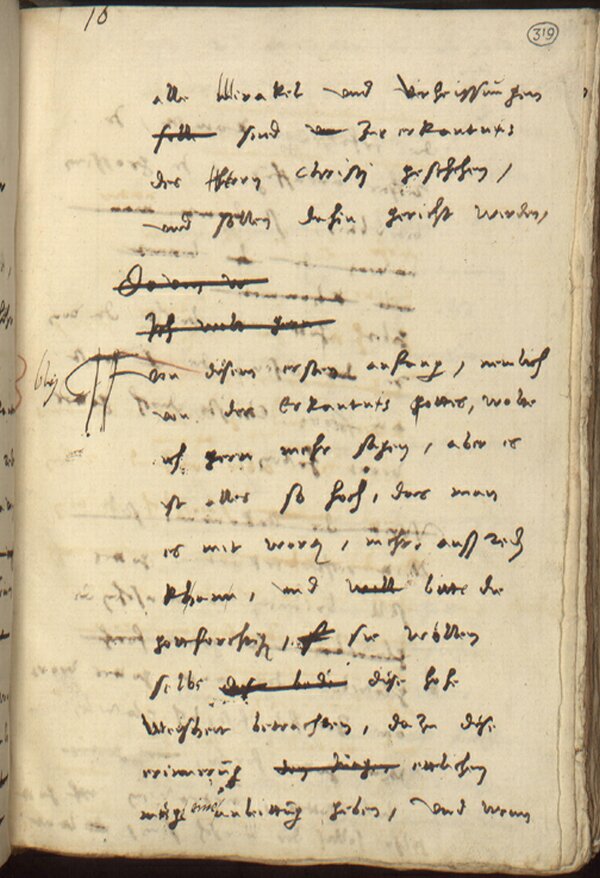 16
319
alle Mirakel und verheissungen
sind zur erkantnus
des Herrn Christi geschehen,
und sollen dahin gericht werden,
Von disem ersten anfang, nemlich
von der Erkantnus gottes, wolte
ich gern mehr sagen, aber es
ist alles so hoch, das man
es mit worten, nicht
khann, und bitte die
gottforchtigen, sie wöllen
selbs dise hohe
weisheit betrachten, dazu dise
erinnerung ettlichen
eine anleittung geben, und wenn